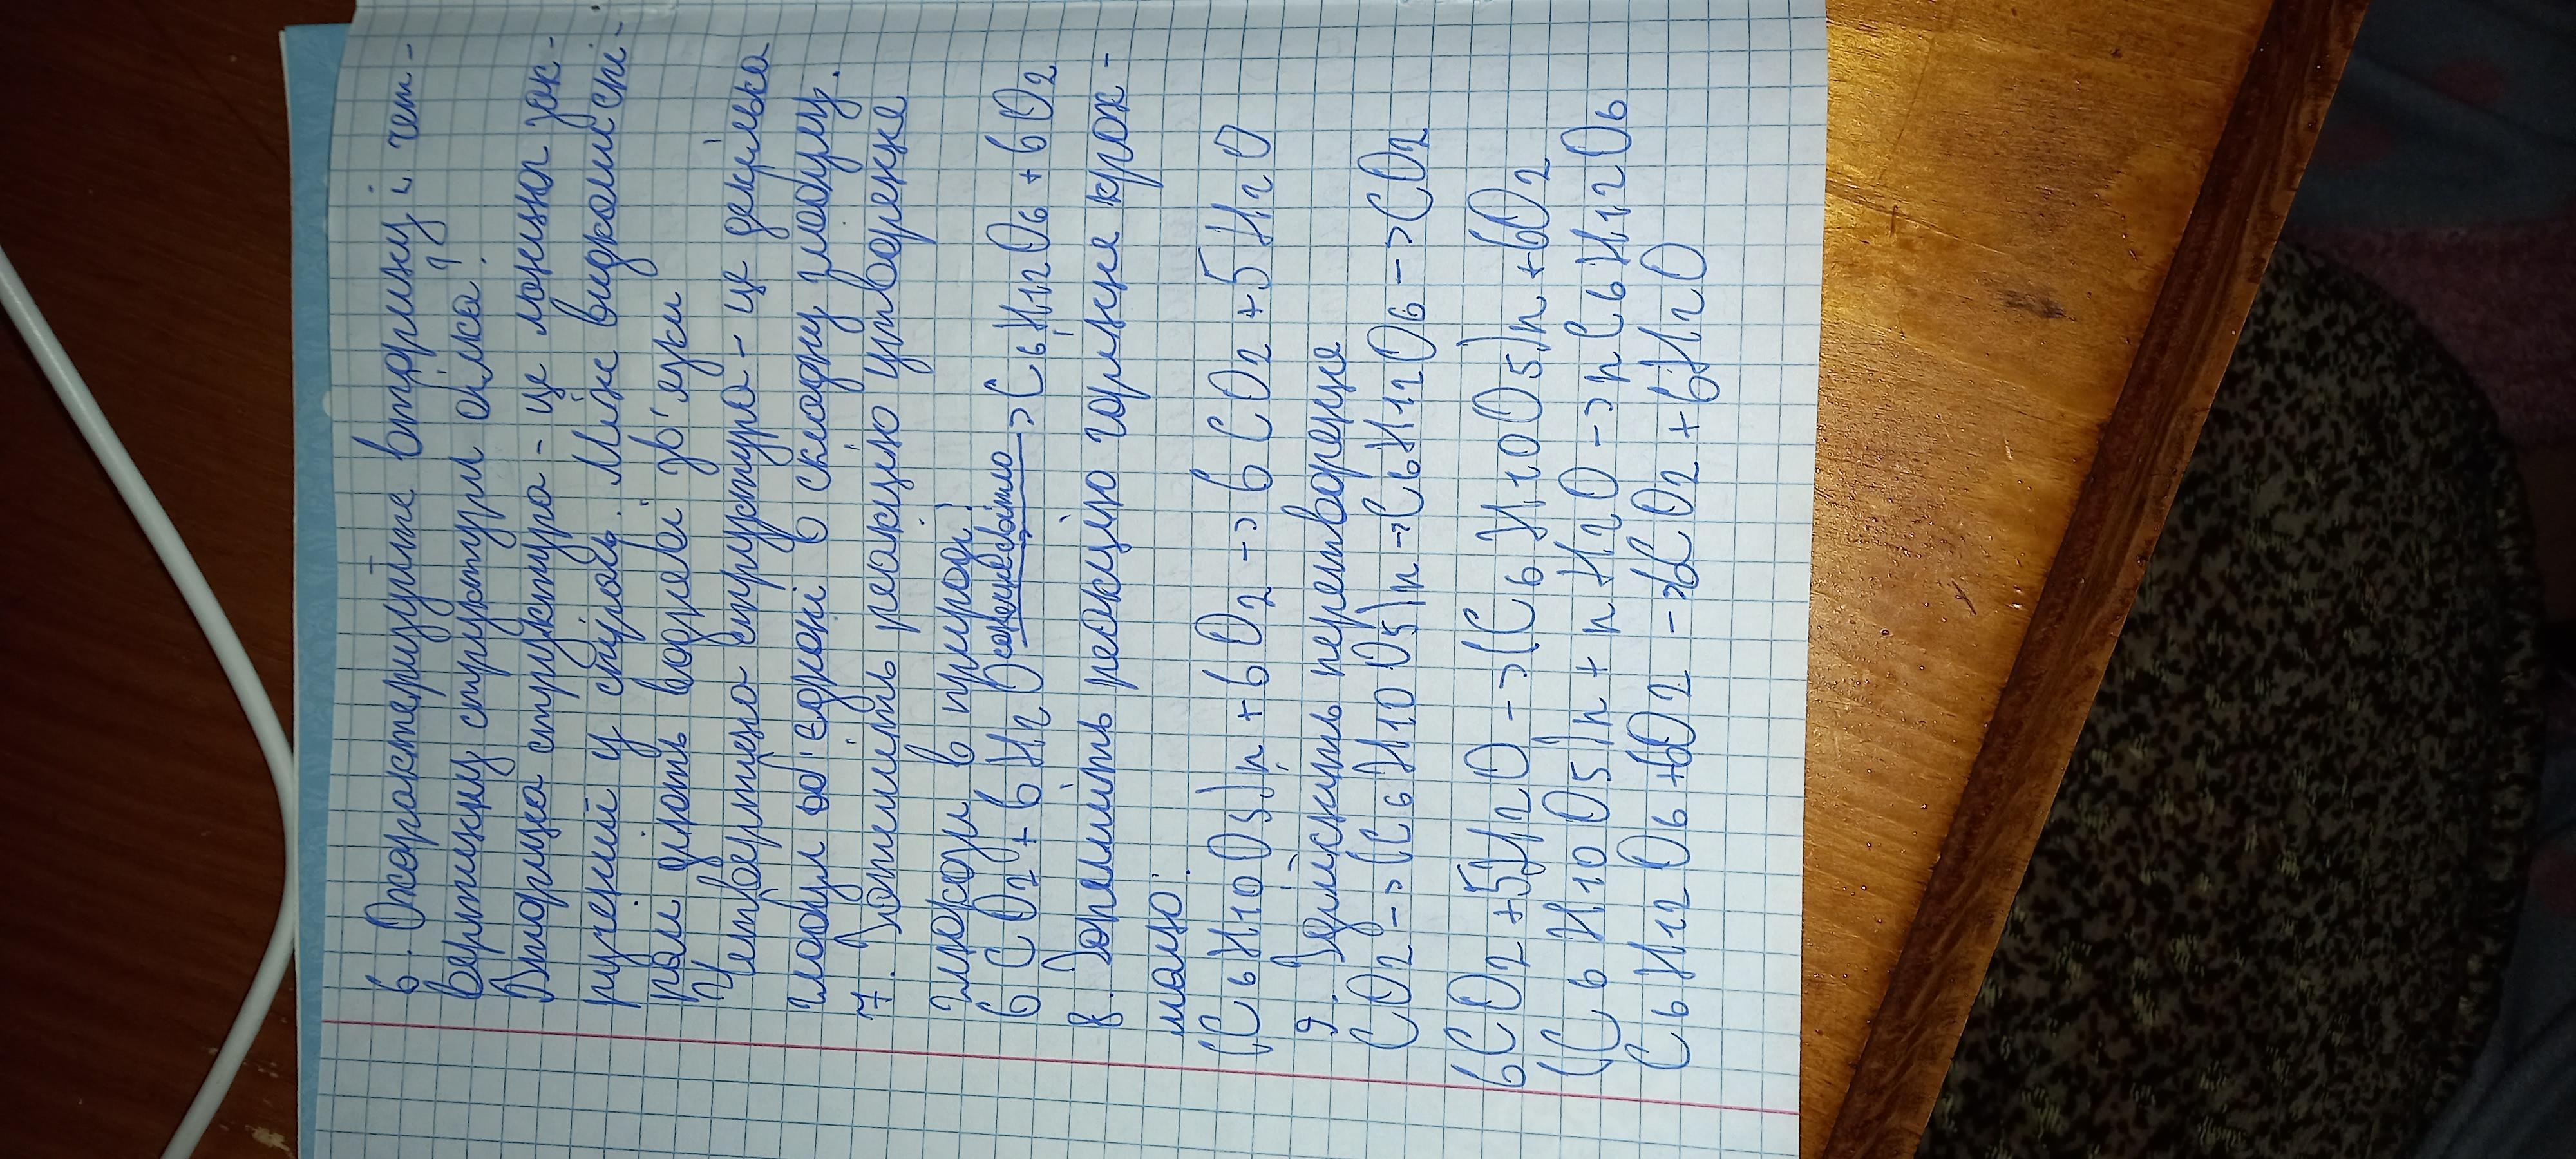 6. Охарактеризуйте вторинну й чет-
вертинну структури білка?
Вторинна структура - це ланцюг зак-
ручений у спіраль. Між витками спі-
ралі діють водневі зв'язки
Четвертинна структура - це декілька
глобул об'єднані в складну глобулу.
7. Допишіть реакцію утворення
глюкози в природі!
6CO2+6H2O сонячне світло -> C6H12O6+6O2
8. Допишіть реакцію горіння крох-
малю.
(C6H10O5)n+6O2->6CO2+5H2O
9. Здійсніть перетворення
CO2->(C6H10O5)n->C6H12O6->CO2
6CO2+5H2O->(C6H10O5)n+6O2
(C6H10O5)n+nH2O->nC6H12O6
C6H12O6+6O2->6CO2+6H2O